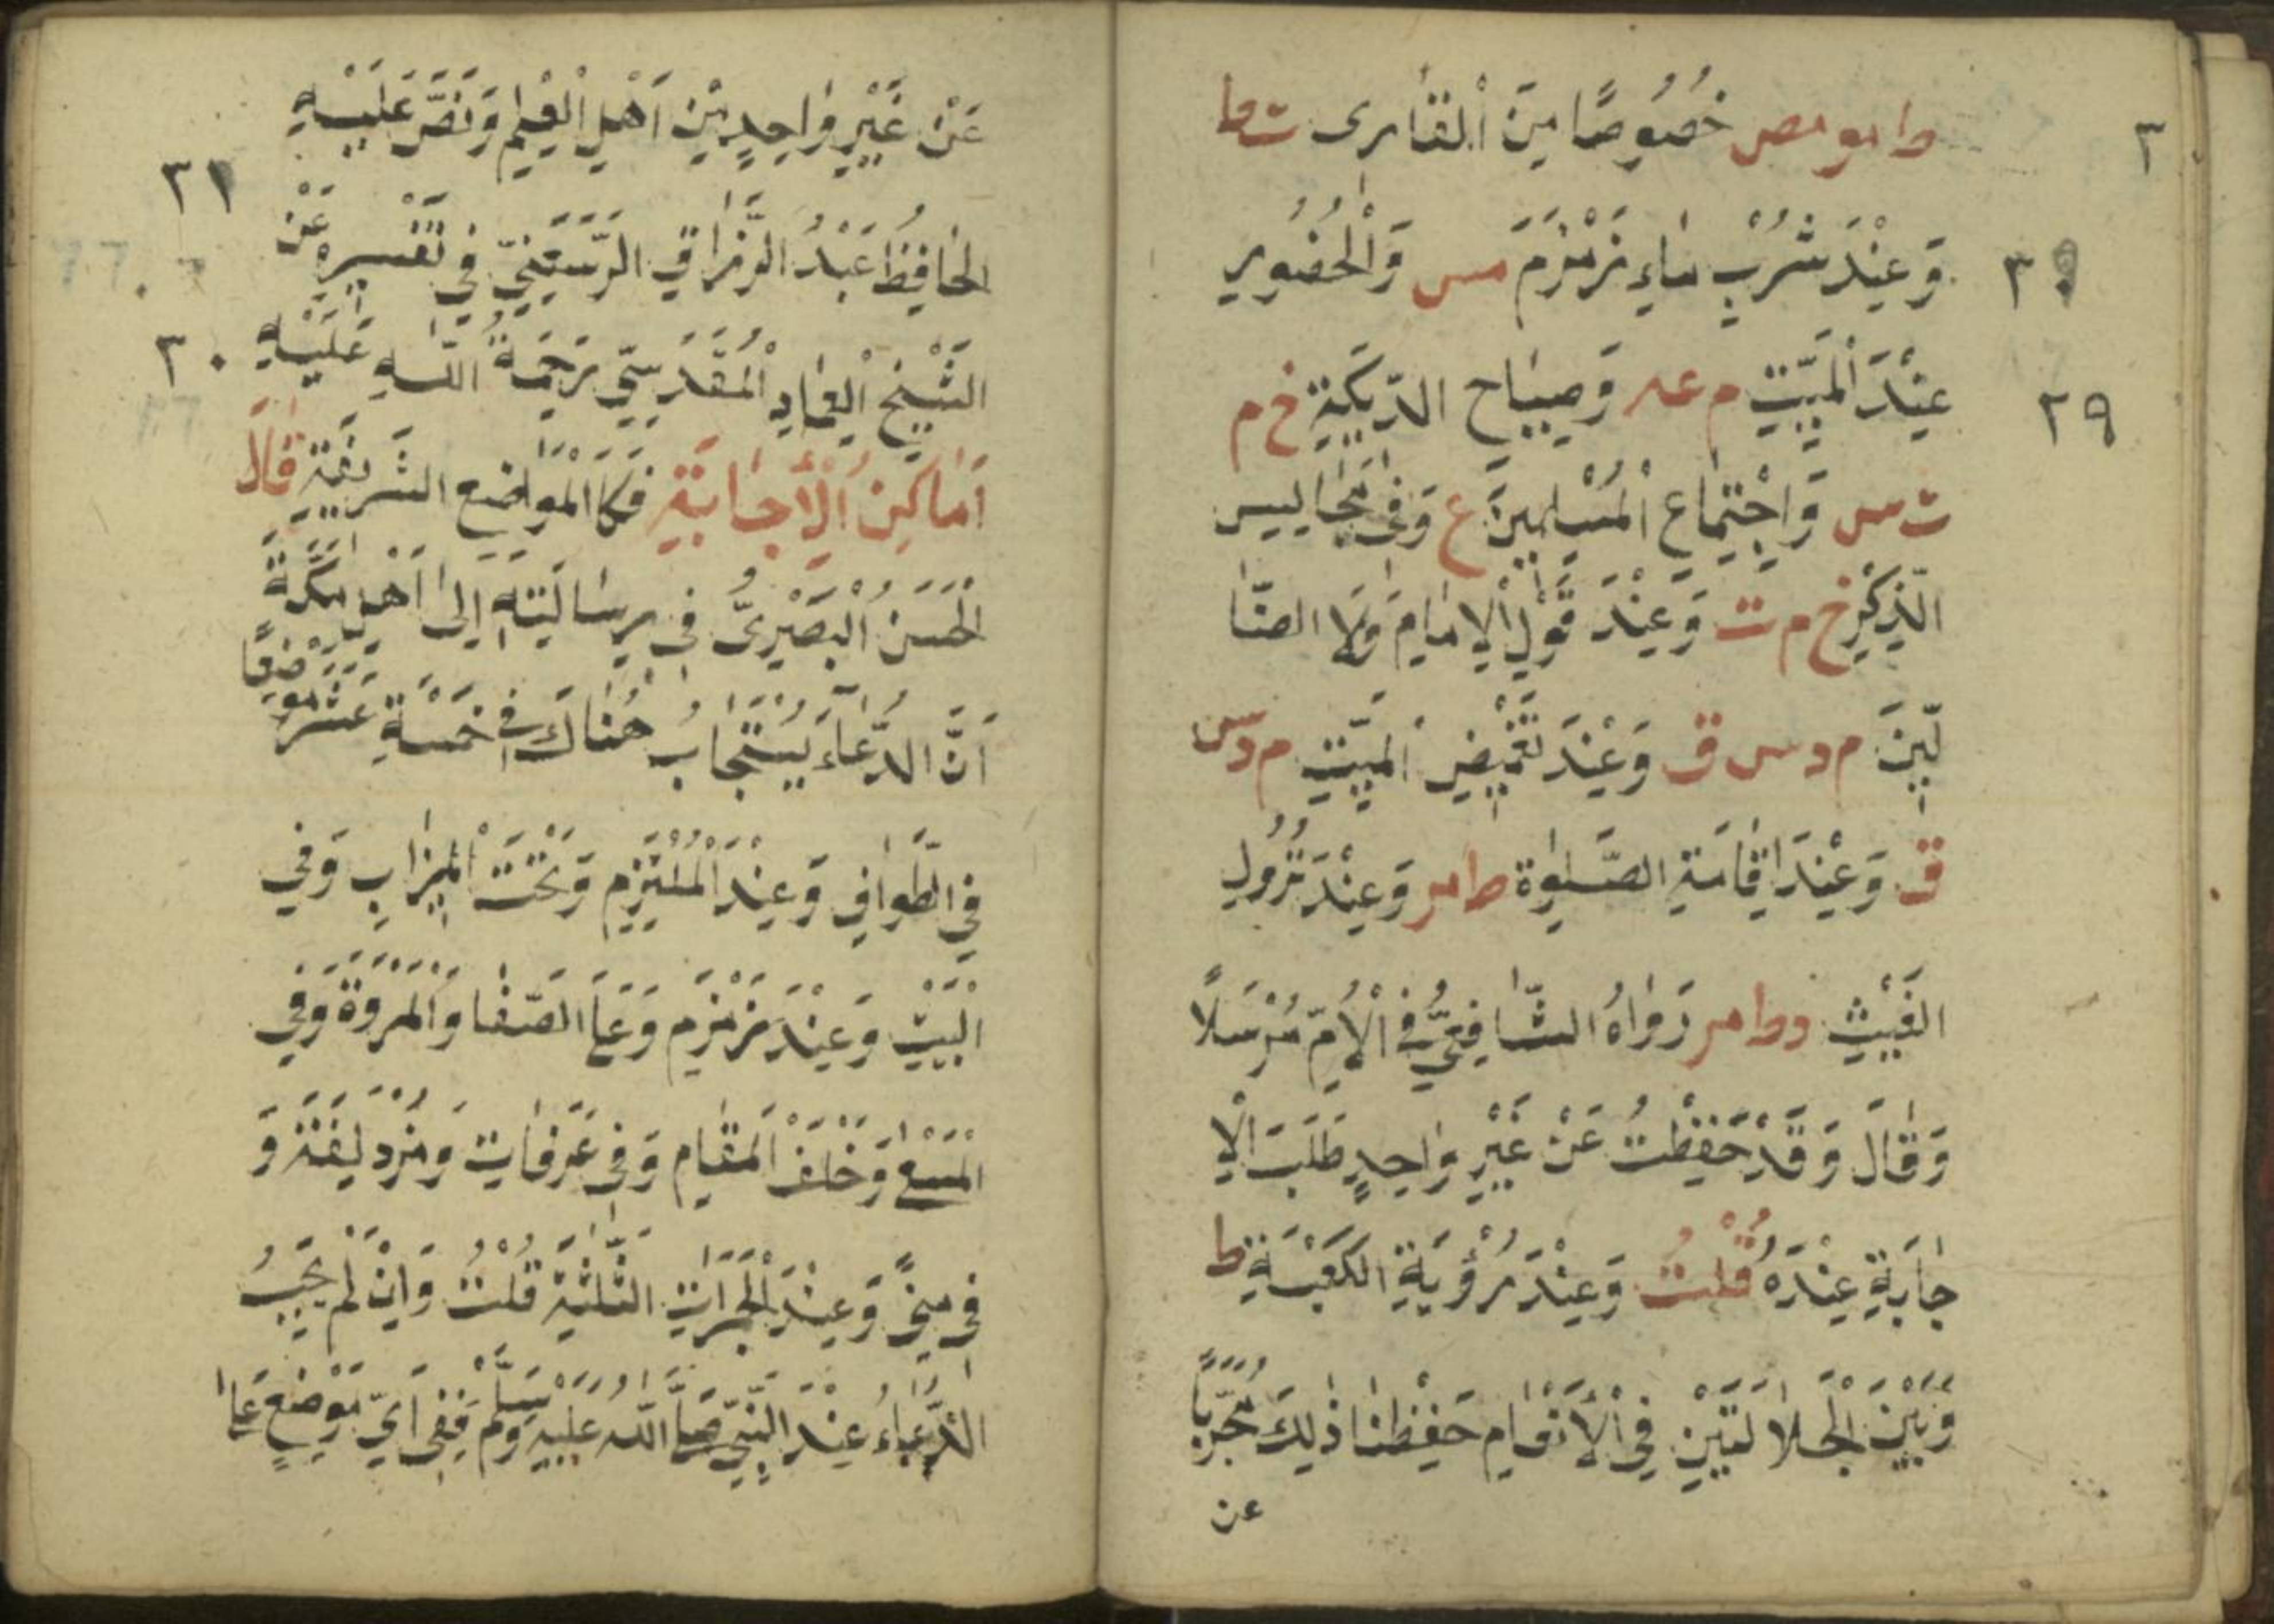 ط ا مو مص خُصُوصًا مِنَ الْقَارِى ت ط
وَعِنْدَ شُرْبِ مَاءِ زَمْزَمَ مس وَالْحُضُورِ
عِنْدَ الْمَيِّتِ م عه وَصِيَاحِ الدِّيَكَةِ خ م
ت س وَاجْتِمَاعِ الْمُسْلِمِينَ ع وَفِى مَجَالِيسِ
الذِّكْرِ خ م ت وَعِنْدَ قَوْلِ الْاِمَامِ وَلَا الضَّا
لِّينَ م د س ق وَعِنْدَ تَغْمِيضِ الْمَيِّتِ م د س
ق وَعِنْدَ اِقَامَةِ الصَّلٰوةِ ط مر وَعِنْدَ نُزُولِ
الْغَيْثِ د ط مر رَوَاهُ الشَّافِعِىُّ فِى الْاُمِّ مُرْسَلًا
وَقَالَ وَقَدْ حَفِظْتُ عَنْ غَيْرِ وَاحِدٍ طَلَبَ الْاِ
جَابَةِ عِنْدَهُ قُلْتُ وَعِنْدَ رُؤْيَةِ الْكَعْبَةِ ط
وَبَيْنَ الْجَلَالَتَيْنِ فِى الْاَنْعَامِ حَفِظْنَا ذٰلِكَ مُجَرَّبًا
عن
٣
٣٠
٢٩
عَنْ غَيْرِ وَاحِدٍ مِنْ اَهْلِ الْعِلْمِ وَنَصَّ عَلَيْهِ
الْحَافِظُ عَبْدُ الرَّزَّاقِ الرَّسْعَنِىُّ فِى تَفْسِيرِهِ عَنْ
الشَّيْخِ الْعِمَادِ الْمَقْدِسِىِّ رَحْمَةُ اللهِ عَلَيْهِ
اَمَاكِنُ الْاِجَابَةِ فَكَا الْمَوَاضِعِ الشَّرِيفَةِ قَالَ
الْحَسَنُ الْبَصْرِىُّ فِى رِسَالَتِهِ اِلَى اَهْلِ مَكَّةَ
اَنَّ الدُّعَاءَ يُسْتَجَابُ هُنَاكَ فِى خَمْسَةِ عَشَرَ مَوْضِعًا
فِى الطَّوَافِ وَعِنْدَ الْمُلْتَزَمِ وَتَحْتَ الْمِيزَابِ وَفِى
الْبَيْتِ وَعِنْدَ زَمْزَمِ وَعَلَى الصَّفَا وَالْمَرْوَةِ وَفِى
الْمَسْعٰى وَخَلْفَ الْمَقَامِ وَفِى عَرَفَاتِ وَمُزْدَلِفَةَ وَ
فِى مِنًى وَعِنْدَ الْجَمَرَاتِ الثَّلٰثَةِ قُلْتُ وَاِنْ لَمْ يُجَبْ
الدُّعَاءُ عِنْدَ النَّبِىِّ صَلَّى اللهُ عَلَيْهِ وَسَلَّمَ فَفِى اَىِّ مَوْضِعٍ عَلَى
٣١
٣٠